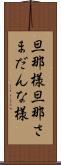 旦那様旦那さ
まだんな様